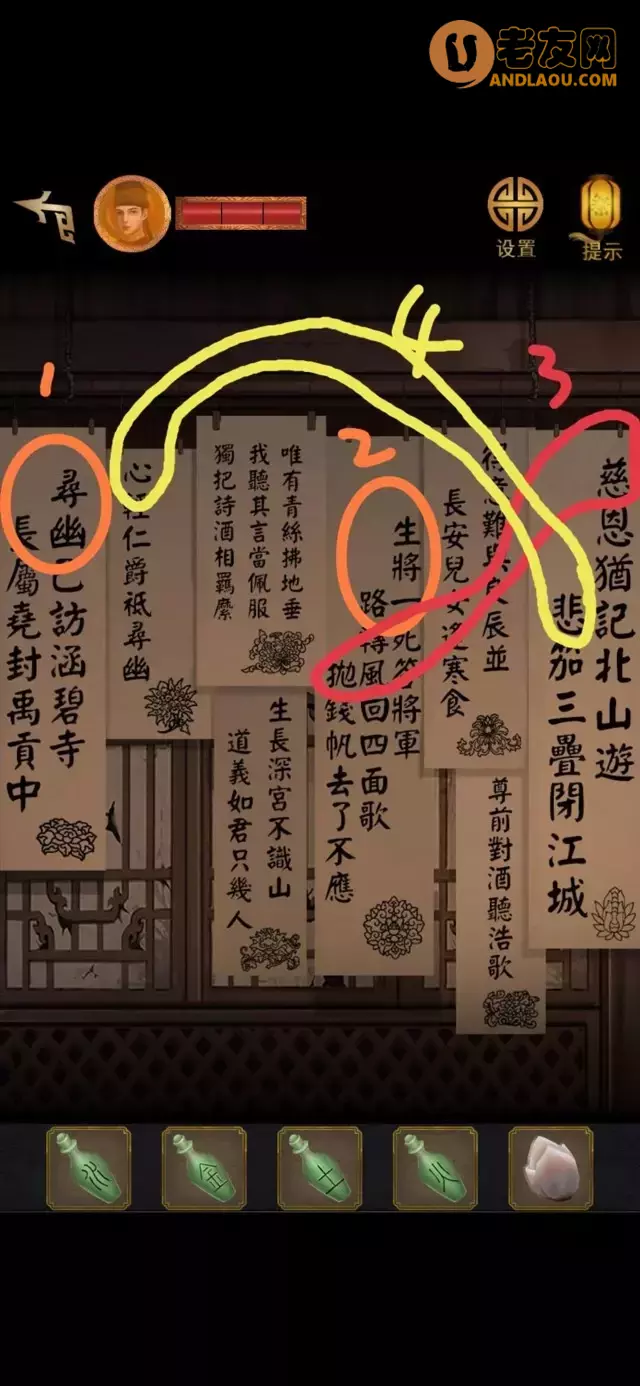 老友网
ANDLAOU.COM
设置
提示
1
2
3
4
尋幽已訪涵碧寺
長屬堯封禹貢中
心輕仁爵祗尋幽
唯有青絲拂地垂
我聽其言當佩服
獨把詩酒相羈縻
生長深宮不識山
道義如君只幾人
生將一死答將軍
路轉風回四面歌
拋錢帆去了不應
得意難與良辰並
長安兒女逢寒食
尊前對酒聽浩歌
慈恩猶記北山遊
悲笳三疊閉江城
水
金
土
火